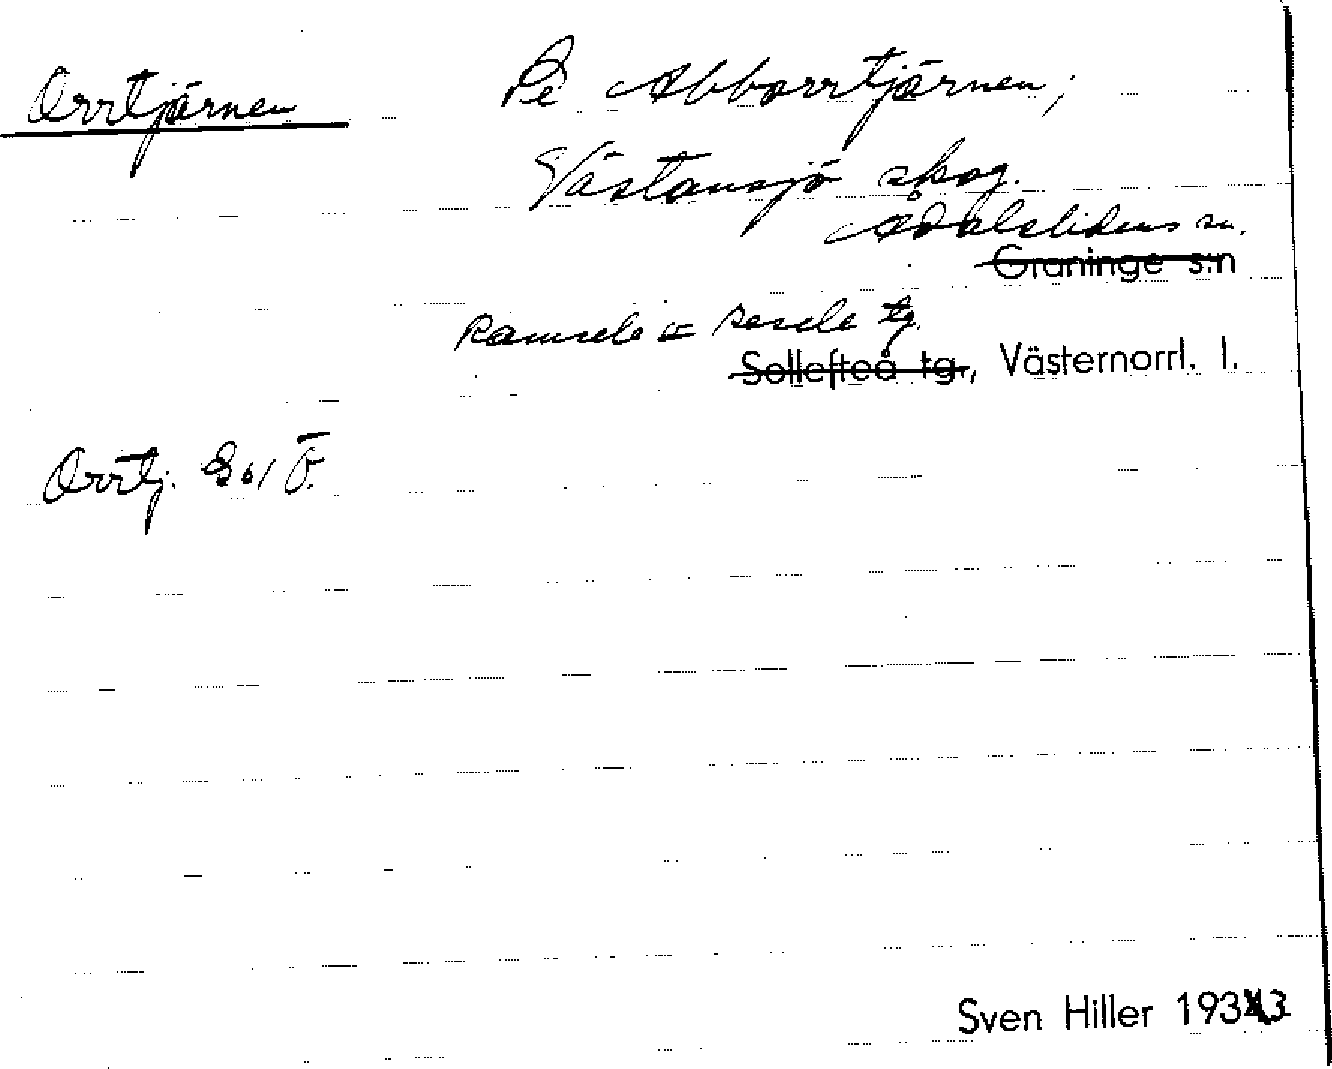 Orrtjärnen
På Abborrtjärnen;
Västansjö skog.
Ådalslidens sn.
Graninge s:n
Ramsele o Resele tg.
Sollefteå tg., Västernorrl. l.
Orrtj.
Sven Hiller 1933